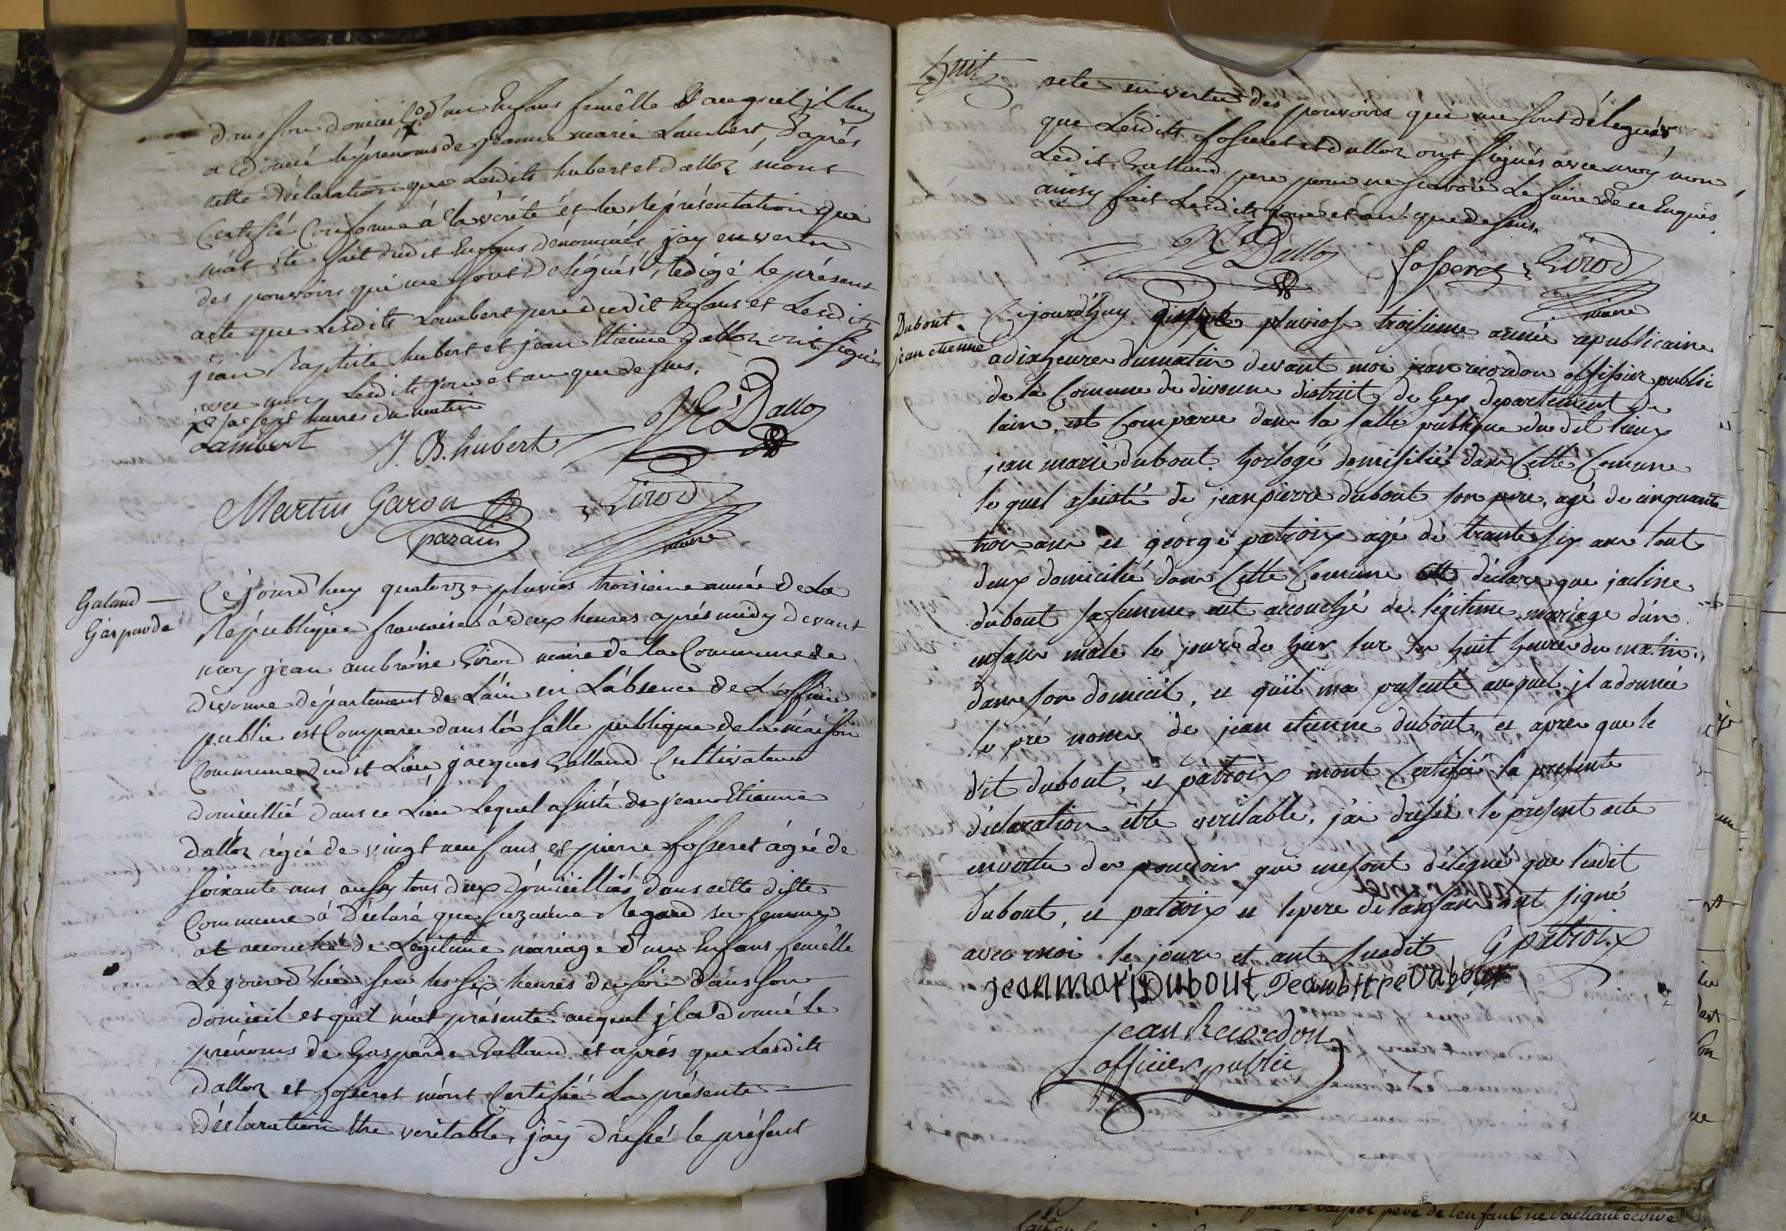 dans son domicil d'un Enfans femêlle auquel il luy
a Donné le prénoms de jeanne marie Lambert, D'après
cette déclaration que Lesdits hubert et Dalloz m'ont
Certifié Conforme à la vérité et la représentation qui
m'at été fait dudit Enfans dénommés, jay en vertu
des pouvoirs qui me sont Délégués, rédigé le présent
acte que Lesdits Lambert pere dudit Enfans et Lesdits
jean Baptiste hubert et jean Etienne Dalloz ont signé
avec moy Lesdits jour et an que dessus.
sept heures du matin
Lambert J. B. hubert JE Dalloz
Martin Garon Girod
parain maire
Galand
Gasparde
Cejourd'huy quatorze pluvios troisieme année de la
République francaise à deux heures après midy devant
moy jean ambroise Girod maire de la Commune de
divonne département de L'ain en L'absence de L'officier
public est Comparu dans la salle publique de la maison
Commune dudit Lieu jacques Galland Cultivateur
domicillié dans ce Lieu Lequel assisté de jean Etienne
Dalloz agée de vingt neuf ans et pierre fosseret agée de
soixante ans aussy tous deux domicilliés dans cette ditte
Commune à Déclaré que suzanne Regard sa femme
at accouché de Légitime mariage d'un Enfans femêlle
Le jour d'hier sur les six heures du soir dans son
domicil et quil m'at présenté auquel il a Donné le
prénoms de Gasparde Galland et après que Lesdits
dalloz et fosseret m'ont Certifié La présente
déclaration Etre veritable, jay Dressé le présent
huit
acte en vertu des pouvoirs qui me sont délegués
que Lesdits fosseret et dalloz ont signés avec moy non
Ledit Galland pere pour ne scavoir Le faire de ce Enquis
ainsy fait Lesdits jour et an que dessus.
JE Dalloz fosseret Girod
maire
Dubout
jean etienne
Cejourd'huy pluviose troisieme année republicaine
a dix heures du matin devant moi jean ricordon offisier public
de la Comune de divonne district de Gex departement de
lain, est Comparu dans la salle publique du dit lieux
jean marie dubout horlogé domisilié dans Cette Comune
le quel assisté de jean pierre dubout son pere, agé de cinquante
trois ans et george patroix agé de trante six ans tout
deux domicilié dans Cette Comune déclare que jacline
dubout sa femme ait accouché de légitime mariage d'un
enfans male le jour de hier sur les huit heures du matin,
dans son domicil, et qu'il ma presenté auquel il a donnée
le pré noms de jean etienne dubout, et apres que le
dit dubout, et patroix mont Certifié la presente
déclaration être veritable, j'ai dressé le present acte
en vertu des pouvoir qui me sont délegué que ledit
dubout, et patroix et le pere de lanfans ont signé
avec moi le jour et ant susdit G patroix
jean mari Dubout Jean Pierre Dubout
jean Ricordon
officier public